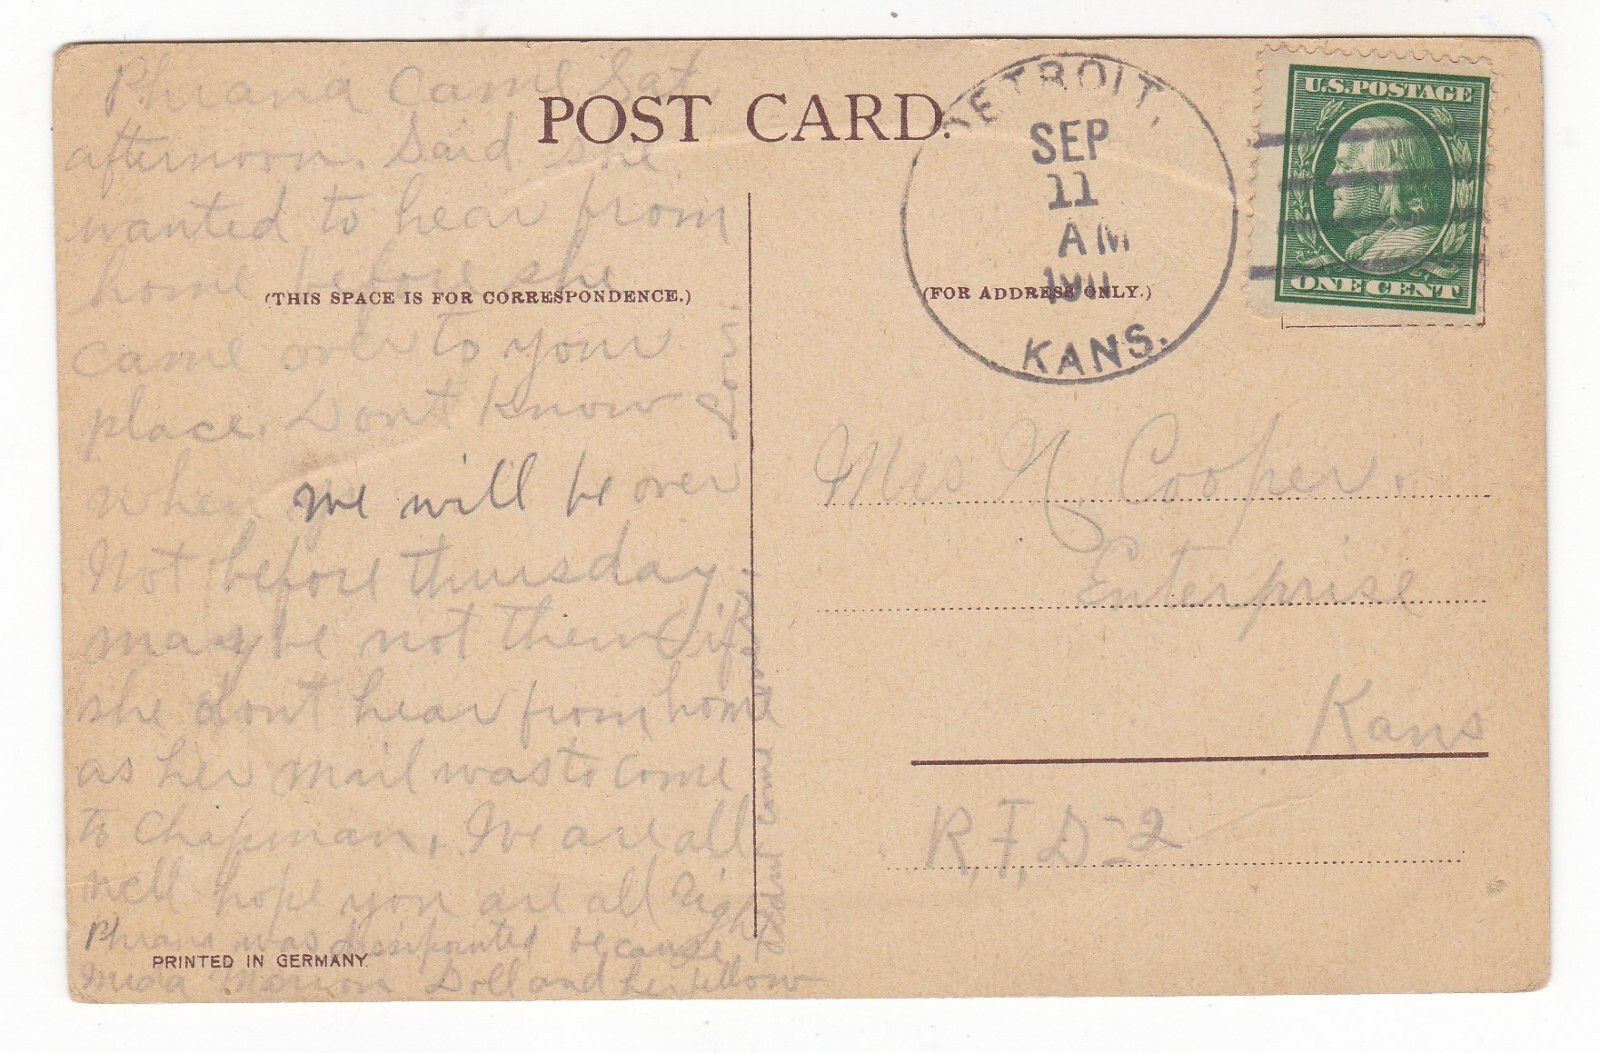 POST CARD.
(THIS SPACE IS FOR CORRESPONDENCE.)
(FOR ADDRESS ONLY.)
PRINTED IN GERMANY
DETROIT,
SEP
11
AM
KANS.
U.S. POSTAGE
ONE CENT
came Sat.
afternoon. Said she
wanted to hear from
home before she
came over to your
place. Dont know
when we will be over
Not before thursday.
maybe not then if
she dont hear from home
as her mail was to come
to Chapman. We are all
well hope you are all right
was because
Doll and her fellow
come
Mrs N. Cooper
Enterprise
Kans
R.F.D-2